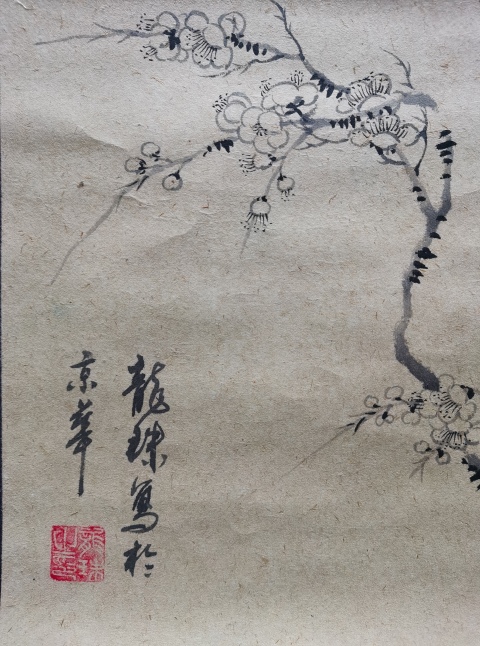 龍珠寫於
京華